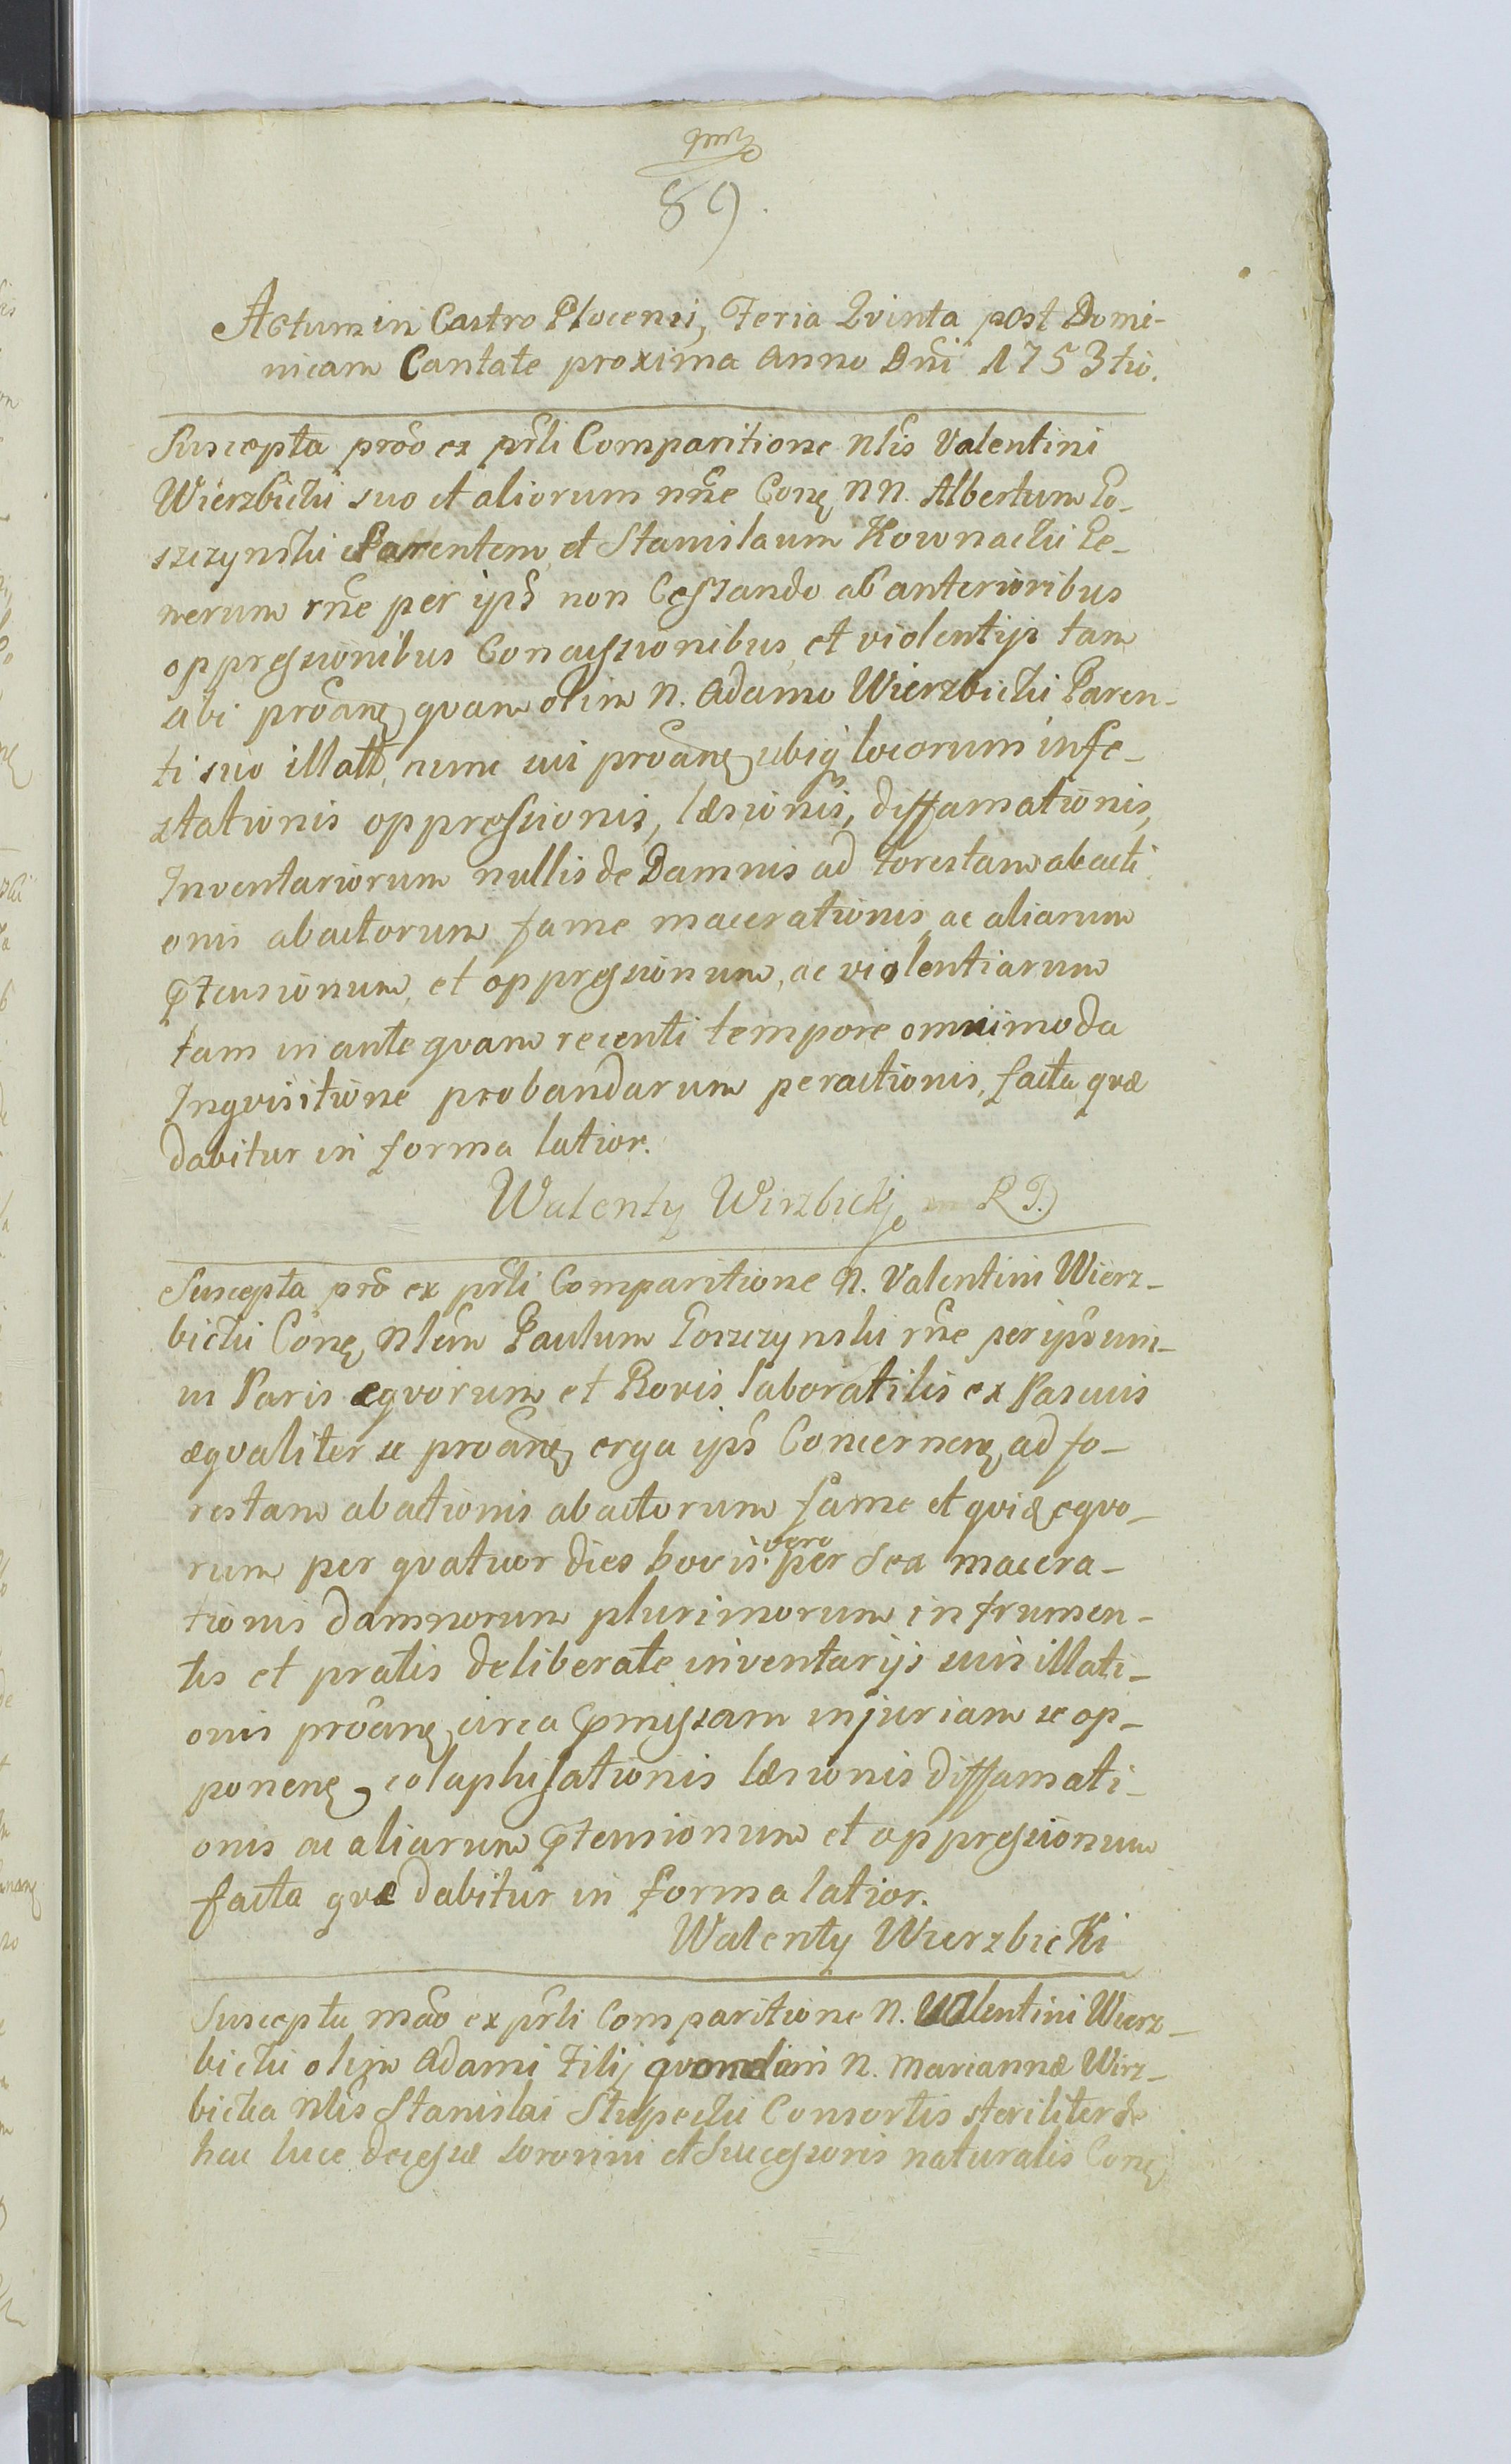 89.
Actum in Castro Plocensi, Feria Qvinta post Domi-
nicam Cantate proxima Anno Dni 1753tio.
Suscepta prõo ex prli Comparitione Nlis Valentini
Wierzbicki suo et aliorum nne Conę NN. Albertum Go-
szczynski Parentem et Stanislaum Kownacki Ge-
nerum rne per ips non Cessando ab anterioribus
oppressionibus Concussionibus et violentijs tam
sibi proanę quam olim N. Adamo Wierzbicki Paren-
ti suo illatt, nunc sui proanę ubiq locorum infe-
stationis oppressionis, læsionis, diffamationis,
Inventariorum nullis de Damnis ad forestam abacti
onis abactorum fame macerationis ac aliarum
ptensionum et oppressionum, ac violentiarum
tam in ante qvam recenti tempore omnimoda
Inqvisitione probandarum peractionis, facta qvæ
dabitur in forma latior.
Walenty Wirzbicki
Suscepta prõ ex prli Comparitione N. Valentini Wierz-
bicki Conę Nlem Paulum Goszczynski rne per ipsum
ui Paris æqvorum et Bovis laboratilis ex Pascuis
æqvaliter se proanę erga ips Concernenę ad fo-
restam abactionis abactorum fame et qvid eqvo-
rum per qvatuor dies bovis vero per Sex macera-
tionis damnorum plurimorum in frumen-
tis et pratis deliberate inventarijs suis illati-
onis proanę circa pmissam injuriam se op-
ponenę, colaphisationis læsionis diffamati-
onis ac aliarum ptensionum et oppressionum
facta qvæ dabitur in forma latior.
Walenty Wierzbicki
Suscepta mão ex prli Comparitione N. Valentini Wierz-
bicki olim Adami Filij qvondam N. Mariannæ Wirz-
bicka Nlis Stanislai Stupecki Consortis steriliter de
hac luce decessæ sororini et Successoris naturalis Conę